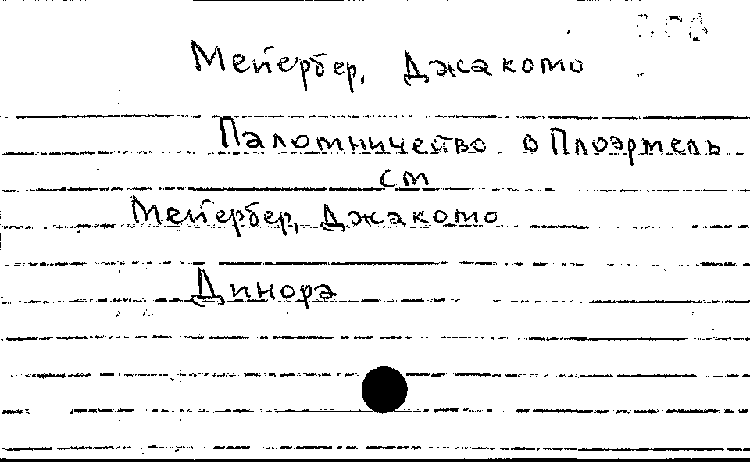 Мейербер, Джакомо
Паломничество в Плоэрмель
см
Мейербер, Джакомо
Динора